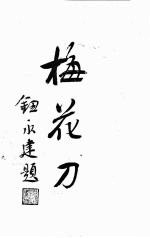 梅花刀
鈕永建題